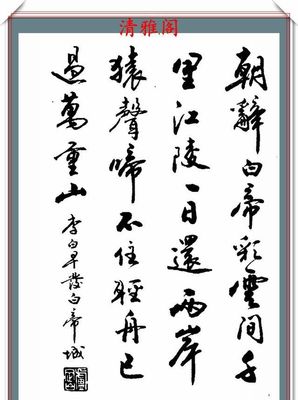 清雅阁
朝辭白帝彩雲間千
里江陵一日還兩岸
猿聲啼不住輕舟已
過萬重山李白早發白帝城